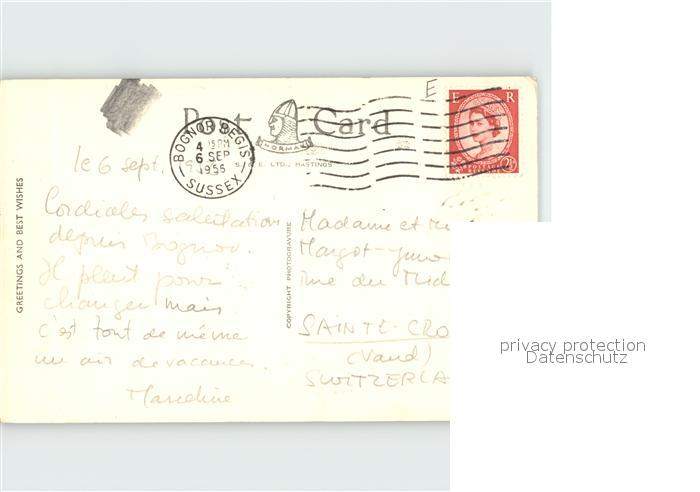 E
Post Card
NORMAN
S. & E. LTD., HASTINGS
BOGNOR REGIS
4 15 PM
6 SEP
1956
SUSSEX
E R
POSTAGE
2½
GREETINGS AND BEST WISHES
COPYRIGHT PHOTOGRAVURE
le 6 sept.
Cordiales salutation
depuis Bognor.
Il pleut pour
changer mais
c'est tout de même
un air de vacances.
Marceline
Madame et
Margot-Juno
rue du Mid
SAINTE-CRO
(Vaud)
SWITZERLA
privacy protection
Datenschutz